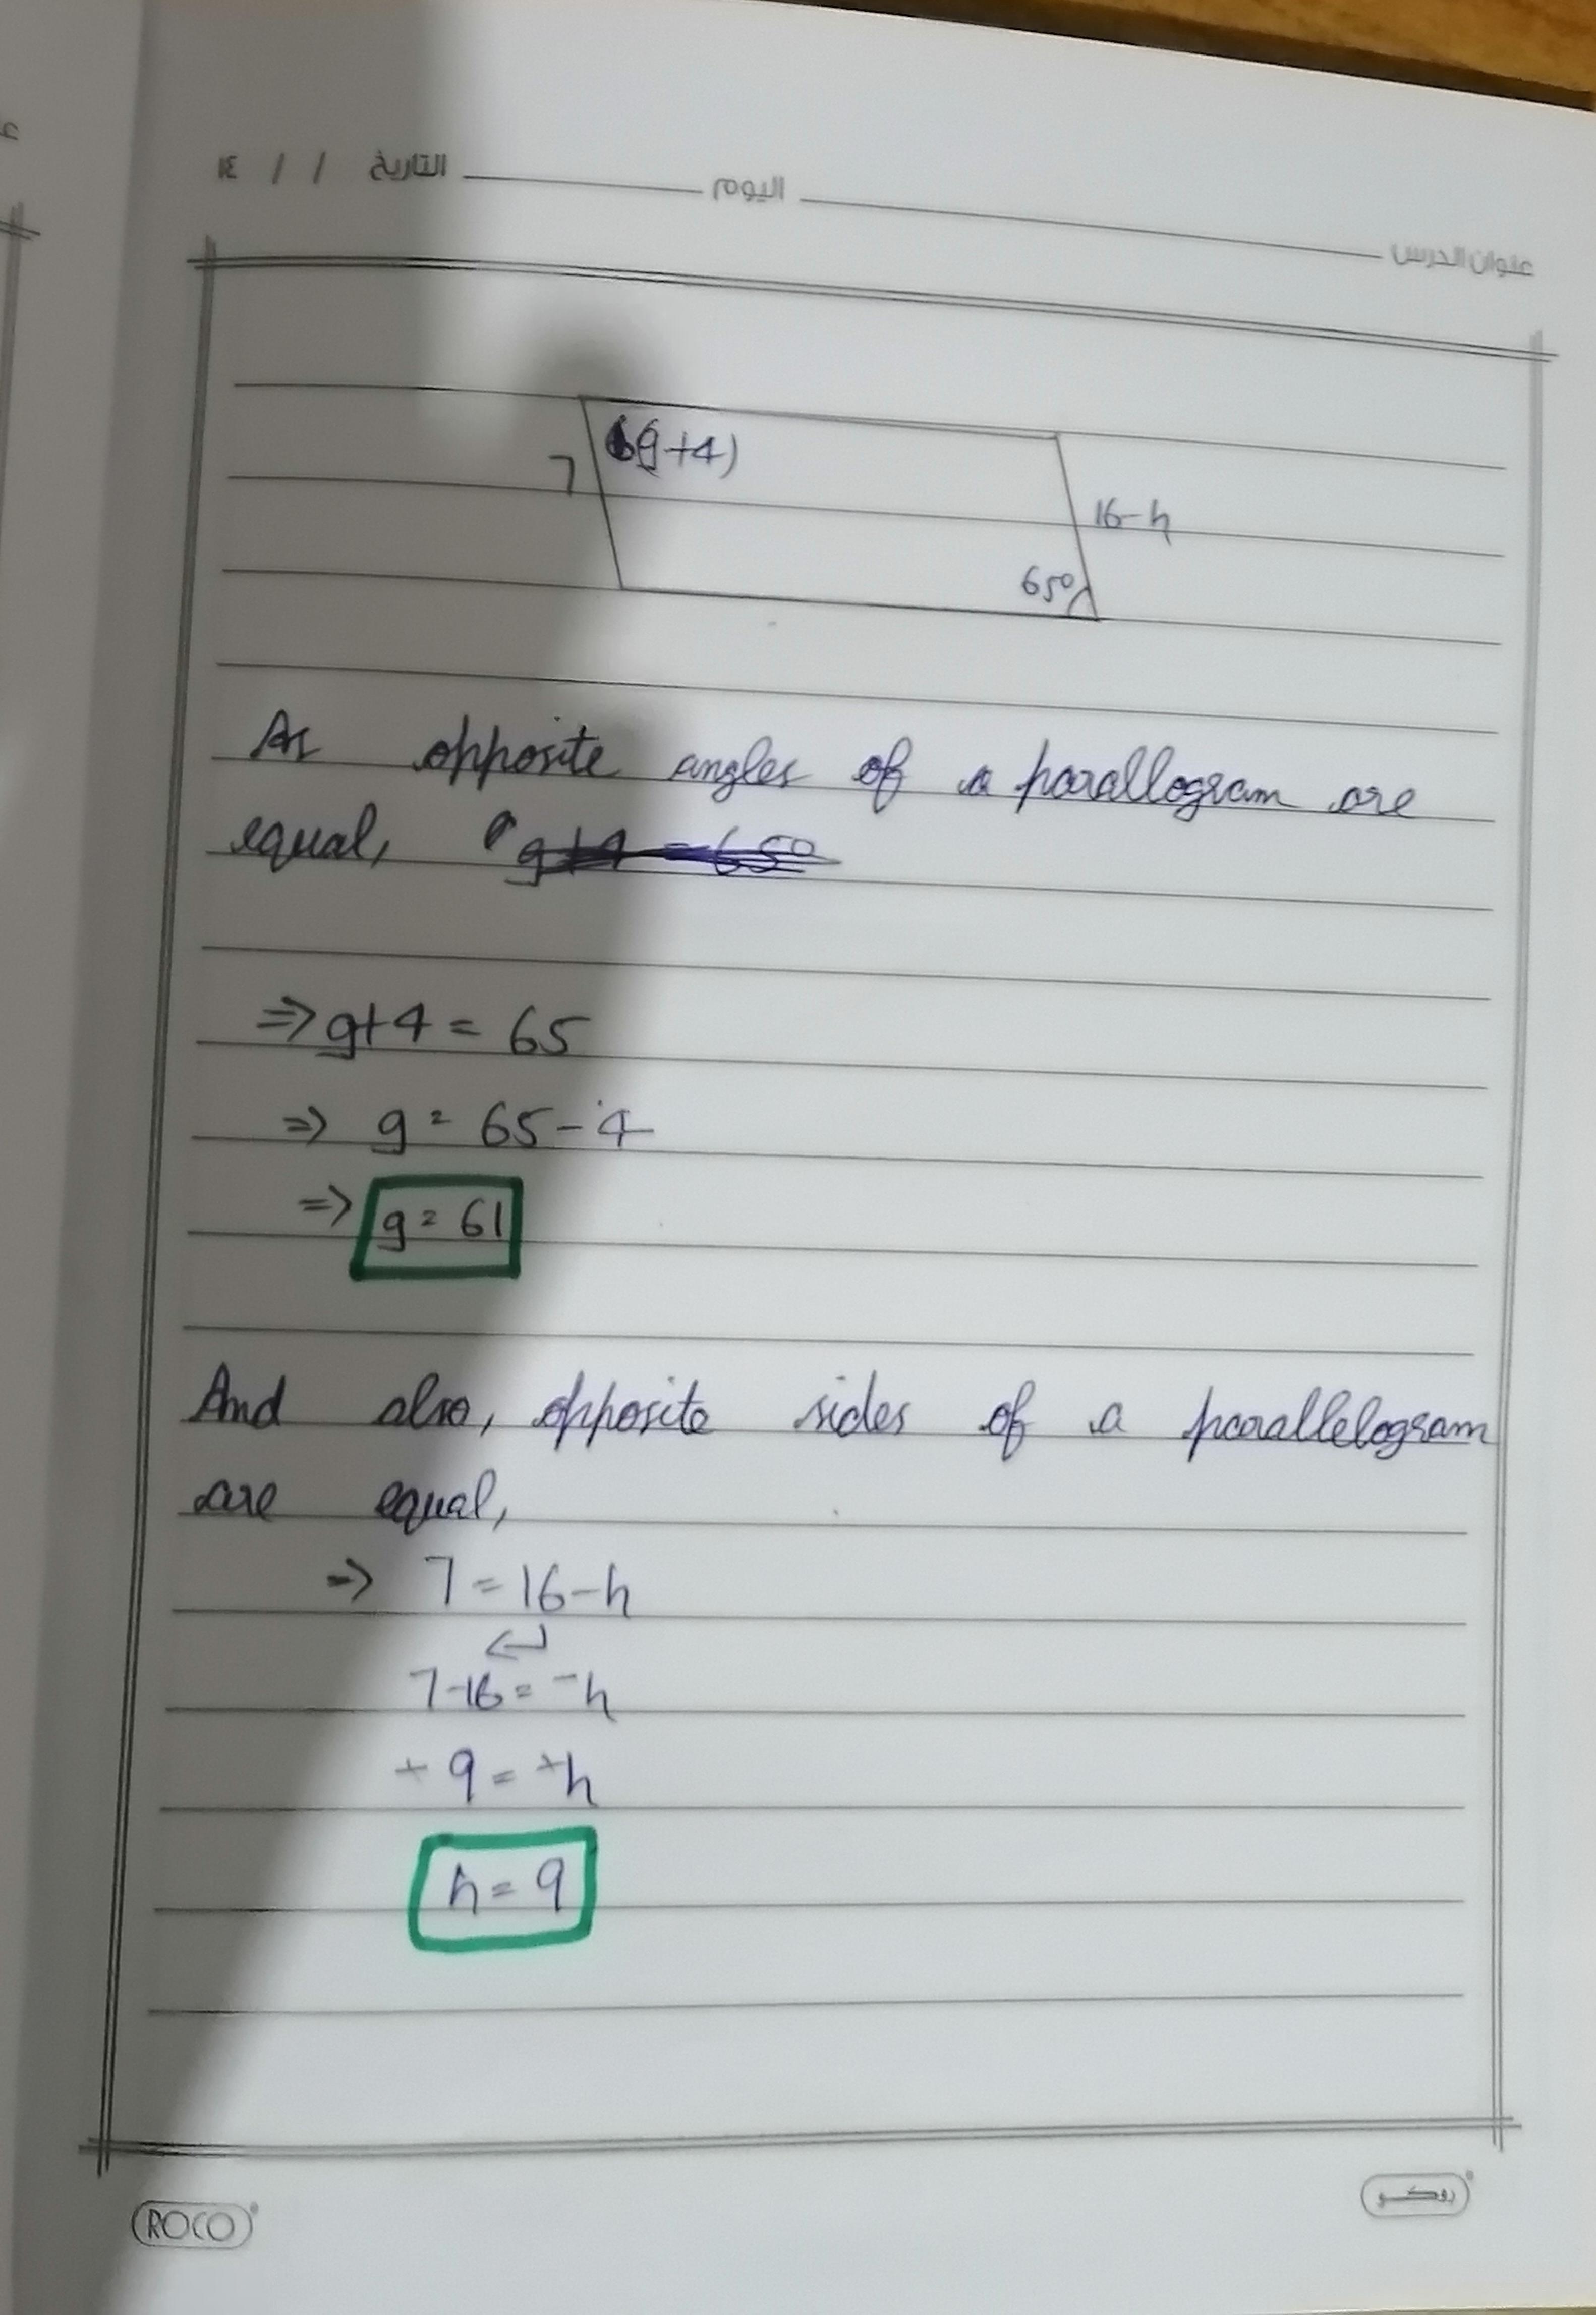 عنوان الدرس اليوم التاريخ / / ١٤
(g+4)
7
16-h
65°
As opposite angles of a parallogram are
equal, g+4 = 65°
⇒ g+4 = 65
⇒ g = 65-4
⇒ g = 61
And also, opposite sides of a parallelogram
are equal,
⇒ 7 = 16-h
7-16 = -h
+ 9 = +h
h = 9
ROCO
روكو